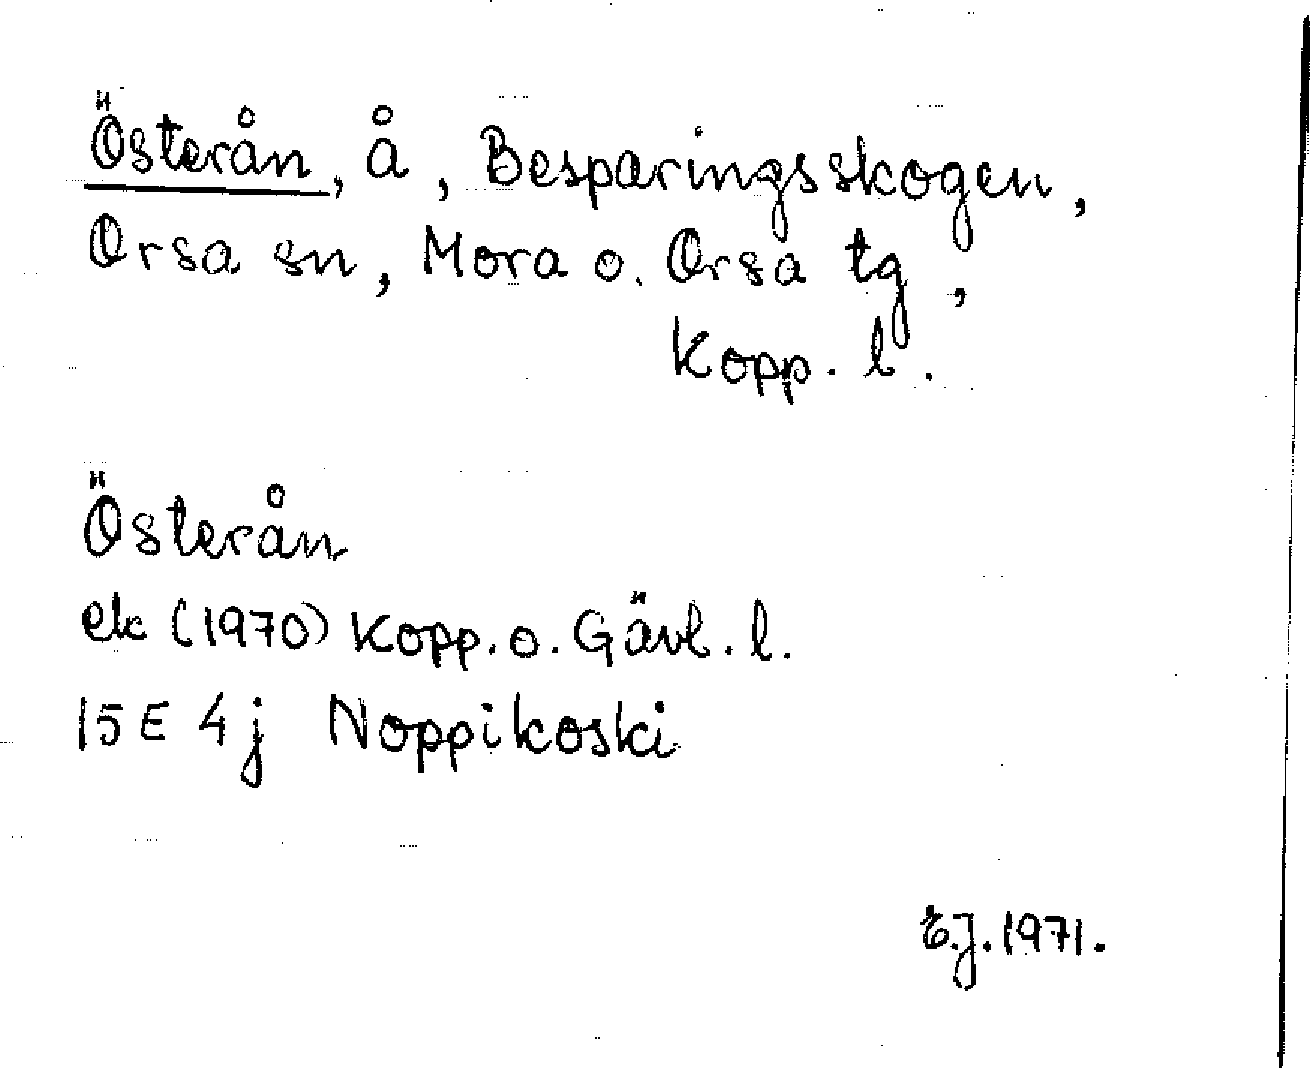 Österån, å, Besparingsskogen,
Orsa sn, Mora o. Orsa tg,
Kopp. l.
Österån
ek (1970) Kopp. o. Gävl. l.
15 E 4j Noppikoski
E.J. 1971.